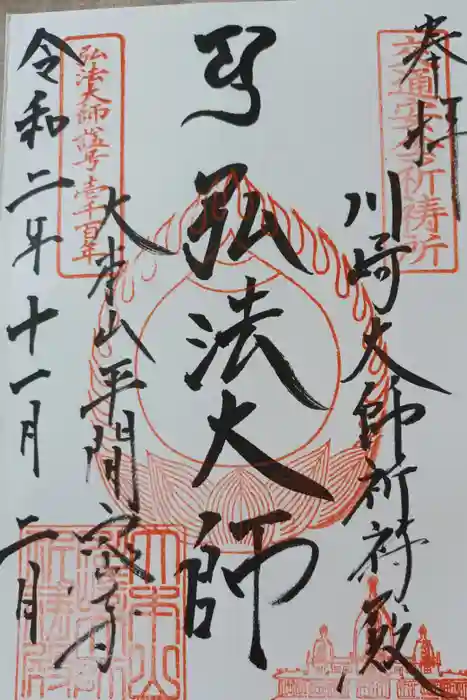 奉拝
交通安全祈祷所
川崎大師祈祷殿
弘法大師
大本山平間寺
弘法大師諡号壱千百年
令和二年十一月二日